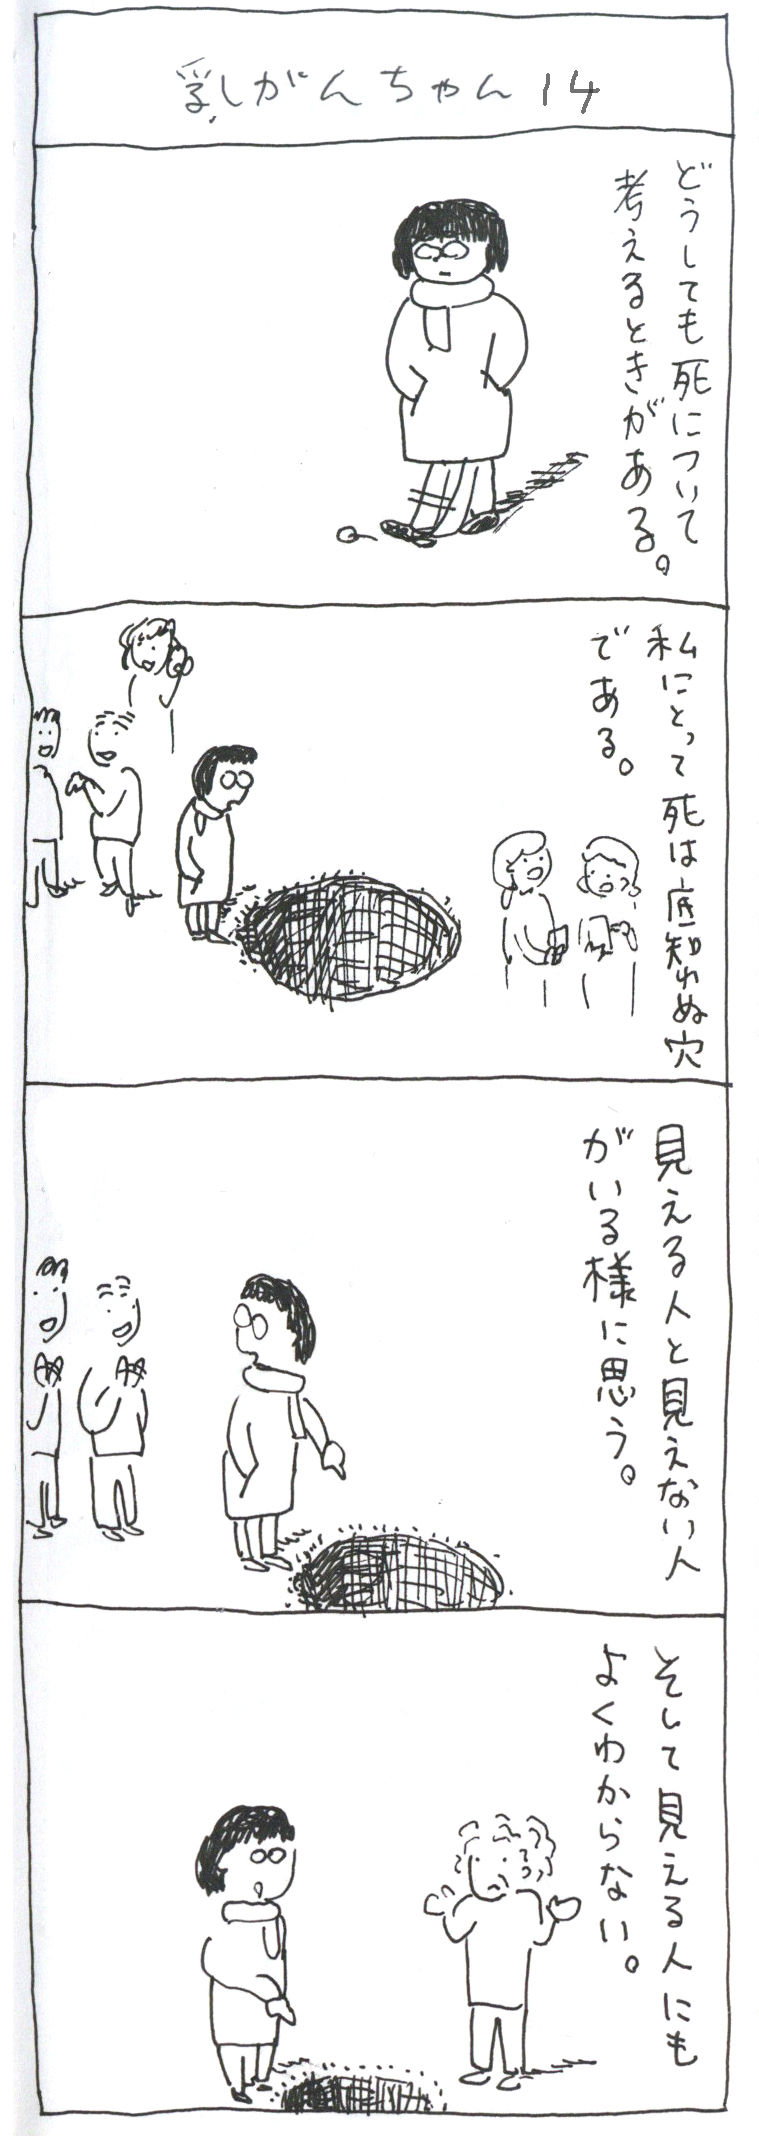 乳がんちゃん 14
どうしても死について
考えるときがある。
私にとって死は底知れぬ穴
である。
見える人と見えない人
がいる様に思う。
そして見える人にも
よくわからない。